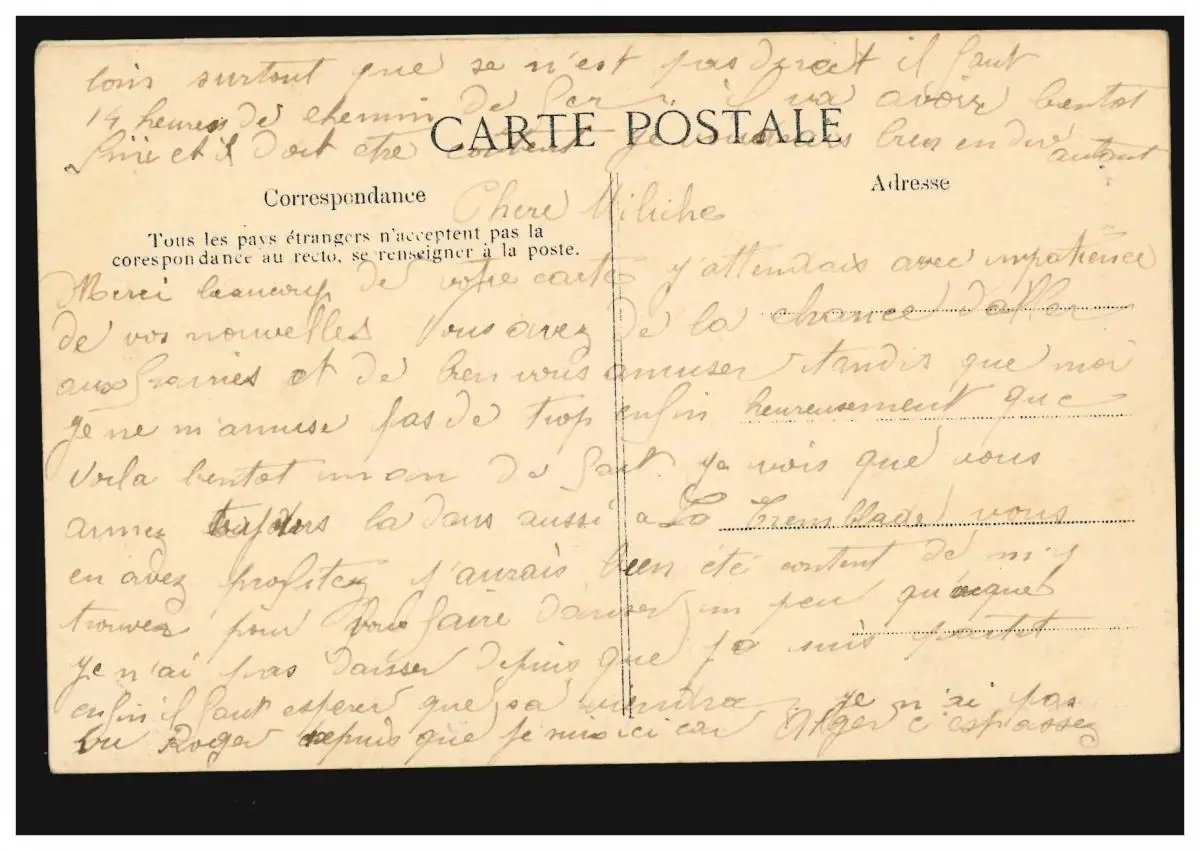 loin surtout que se n'est pas direct il faut
14 heures de chemin de fer il va avoir bentot
fini et il doit etre content je voudrais bien en dire autant
CARTE POSTALE
Correspondance
Adresse
Tous les pays étrangers n'acceptent pas la
corespondance au recto, se renseigner à la poste.
Chere Miliche
Merci beaucoup de votre carte j'attendais avec impatience
de vos nouvelles vous avez de la chance d'aller
aux frairies et de bien vous amuser tandis que moi
je ne m'amuse pas de trop enfin heureusement que
voila bentot un an de fait. je vois que vous
aimez toujours la dans aussi a La Tremblade vous
en avez profitez j'aurais bien été content de m'y
trouver pour vous faire danser un peu
je n'ai pas danser depuis que je suis partit
enfin il faut esperer que sa viendra. je n'ai pas
vu Roger depuis que je suis ici car Alger c'est assez